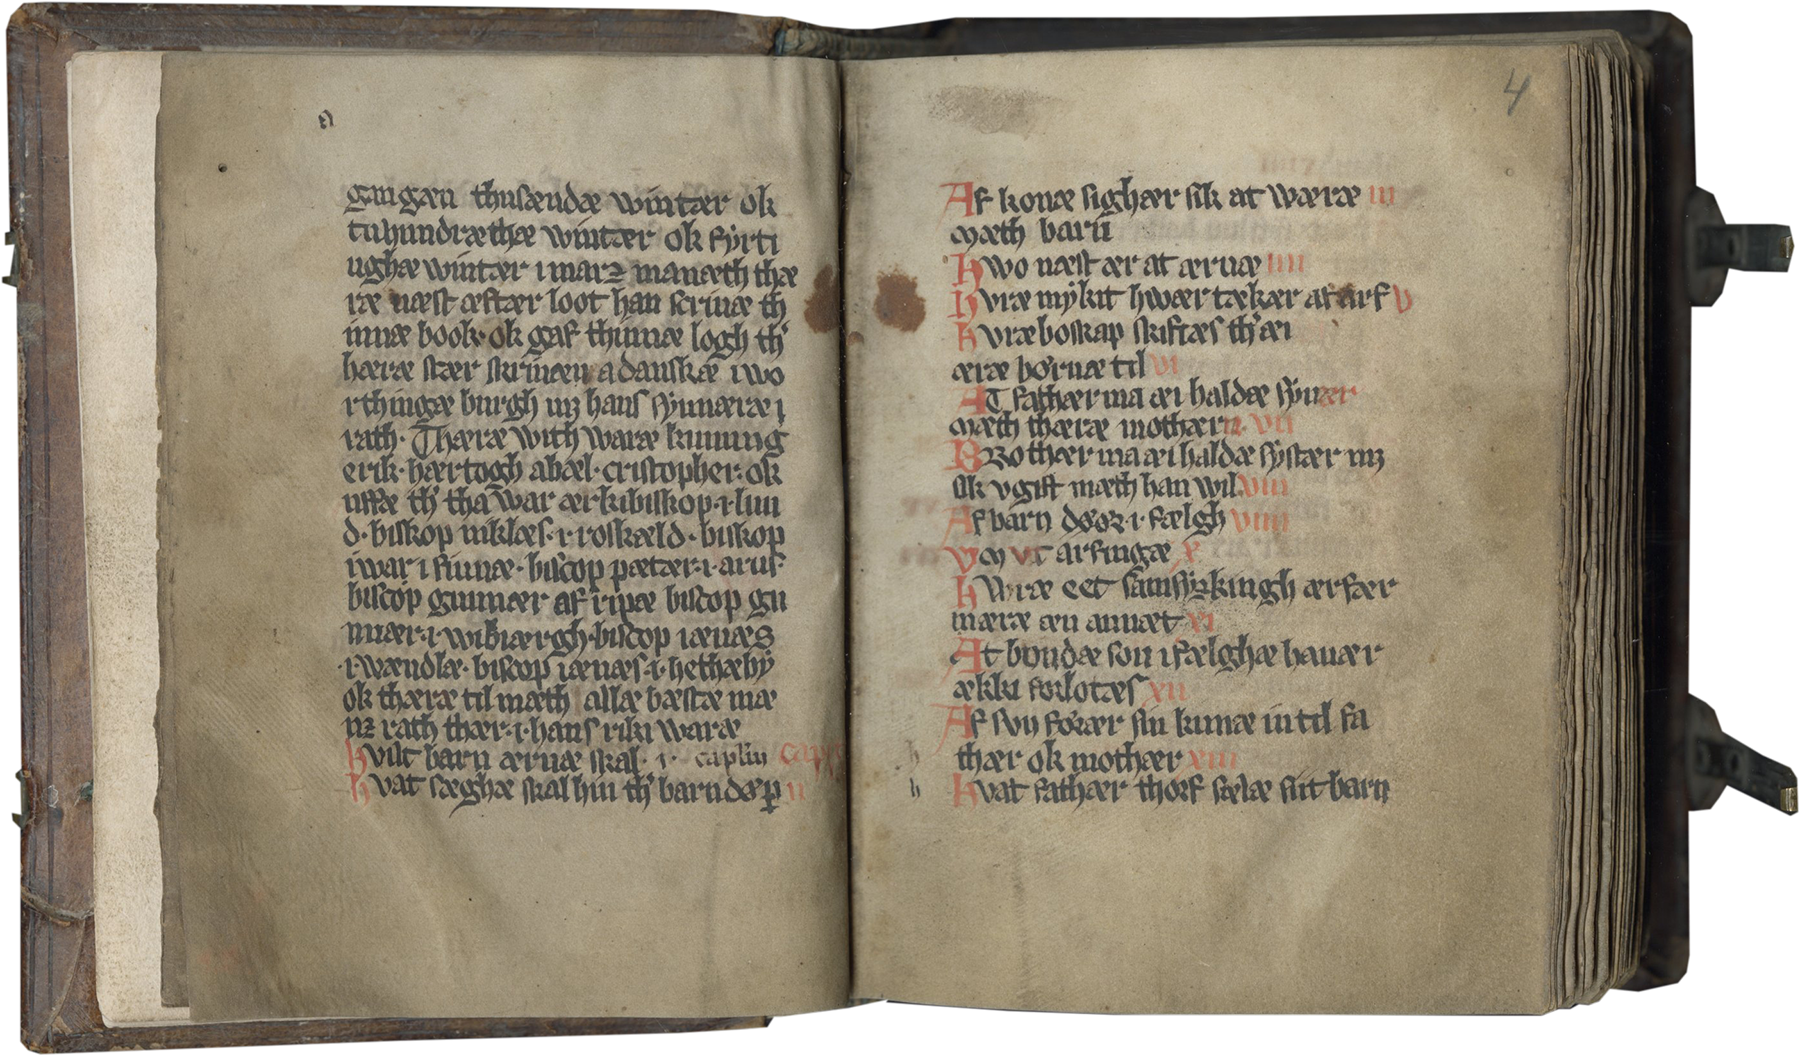 gangæn thusændæ wintær ok
tuhundræthæ wintær ok fyrti
ughæ wintær i marz manæth thæ
ræ næst æftær loot han scriuæ th
innæ book· ok gaf thinnæ logh th'
hæræ stær skriuæn a danskæ i wo
rthingæ burgh mz hans synnæræ i
rath· Thæræ with waræ kunung
erik· hærtogh abæl· cristopher· ok
uffæ th' tha war ærkibiskop·i·lun
d· biskop niklæs·i·roskæld· biskop
iwar i fiunæ· biscop pætær·i·arus·
biscop gunnær af ripæ biscop gu
nnær·i·wibiærgh·biscop iænæs
·i·wændlæ· biscop iænæs·i·hethæby
ok thæræ til mæth allæ bæstæ mæ
nz rath thær·i·hans riki waræ
hvilt barn æruæ skal· i· capitulum
hvat sæghæ skal hin th' barn døp ii
4
Af konæ sighær sik at wæræ iii
mæth barn
hwo næst ær at æruæ iiii
hvræ mykit hwær tækær af arf v
hvræ boskap skiftæs th'æi
æræ børnæ til vi
AT fathær ma æi haldæ synær
mæth thæræ mothærn vii
BRothær ma æi haldæ systær mz
sik vgift mæth han wil viii
Af barn døør·i·fælgh viiii
vm vt arfingæ x
hwræ eet samsyzkingh ærfær
meræ æn annæt xi
At bondæ son i fælghæ hauær
ækki forlotæs xii
Af svn førær sin kunæ in til fa
thær ok mothær xiii
hvat fathær thorf sælæ sint barn